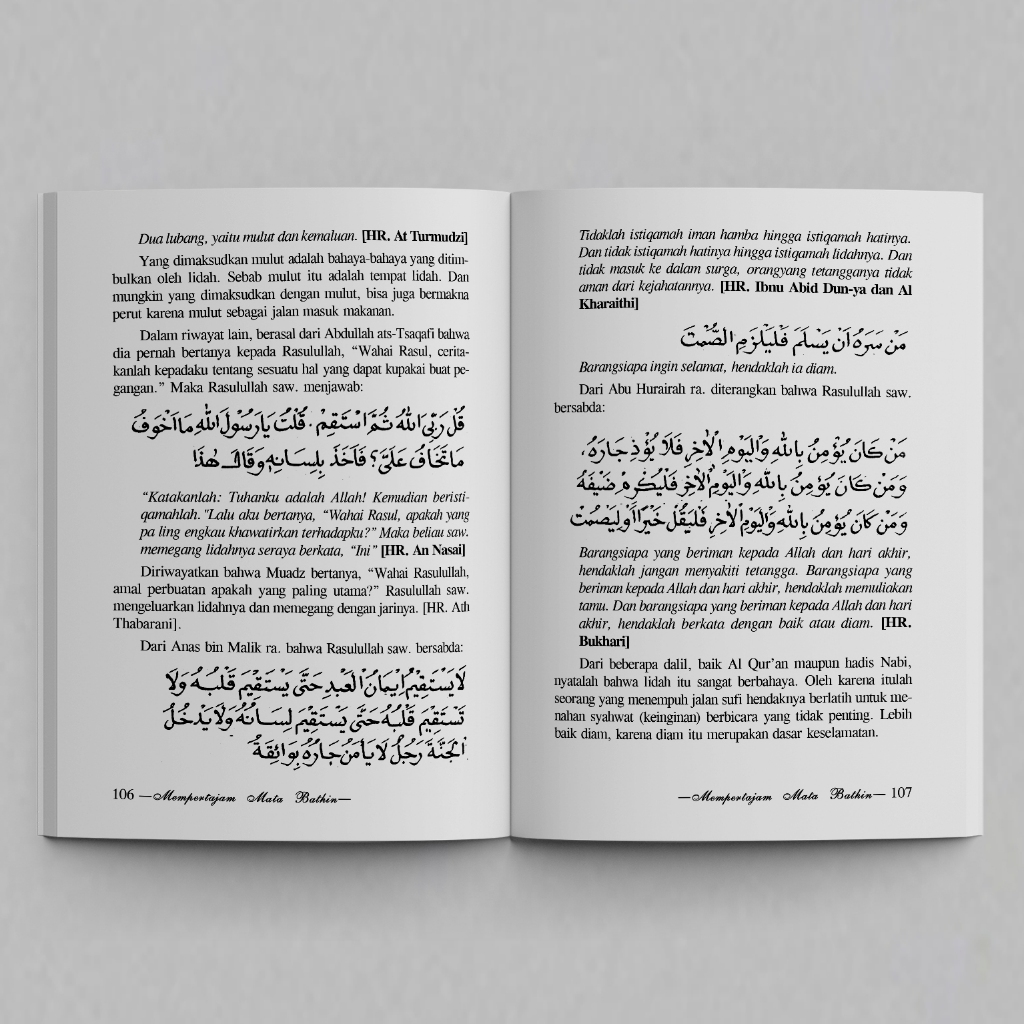 Dua lubang, yaitu mulut dan kemaluan. [HR. At Turmudzi]
Yang dimaksudkan mulut adalah bahaya-bahaya yang ditim-
bulkan oleh lidah. Sebab mulut itu adalah tempat lidah. Dan
mungkin yang dimaksudkan dengan mulut, bisa juga bermakna
perut karena mulut sebagai jalan masuk makanan.
Dalam riwayat lain, berasal dari Abdullah ats-Tsaqafi bahwa
dia pernah bertanya kepada Rasulullah, “Wahai Rasul, cerita-
kanlah kepadaku tentang sesuatu hal yang dapat kupakai buat pe-
gangan.” Maka Rasulullah saw. menjawab:
قُلْ رَبِّيَ اللهُ ثُمَّ اسْتَقِمْ. قُلْتُ يَارَسُوْلَ اللهِ مَا اَخْوَفُ
مَا تَخَافُ عَلَيَّ؟ فَاَخَذَ بِلِسَانِهِ وَقَالَ هٰذَا
“Katakanlah: Tuhanku adalah Allah! Kemudian beristi-
qamahlah. "Lalu aku bertanya, “Wahai Rasul, apakah yang
pa ling engkau khawatirkan terhadapku?” Maka beliau saw.
memegang lidahnya seraya berkata, “Ini” [HR. An Nasai]
Diriwayatkan bahwa Muadz bertanya, “Wahai Rasulullah,
amal perbuatan apakah yang paling utama?” Rasulullah saw.
mengeluarkan lidahnya dan memegang dengan jarinya. [HR. Ath
Thabarani].
Dari Anas bin Malik ra. bahwa Rasulullah saw. bersabda:
لَا يَسْتَقِيْمُ اِيْمَانُ الْعَبْدِ حَتَّى يَسْتَقِيْمَ قَلْبُهُ وَلَا
تَسْتَقِيْمَ قَلْبُهُ حَتَّى يَسْتَقِيْمَ لِسَانُهُ وَلَا يَدْخُلُ
الْجَنَّةَ رَجُلٌ لَا يَأْمَنُ جَارُهُ بَوَائِقَهُ
106 —Mempertajam Mata Bathin—
Tidaklah istiqamah iman hamba hingga istiqamah hatinya.
Dan tidak istiqamah hatinya hingga istiqamah lidahnya. Dan
tidak masuk ke dalam surga, orangyang tetangganya tidak
aman dari kejahatannya. [HR. Ibnu Abid Dun-ya dan Al
Kharaithi]
مَنْ سَرَهُ اَنْ يَسْلَمَ فَلْيَلْزَمِ الصَّمْتَ
Barangsiapa ingin selamat, hendaklah ia diam.
Dari Abu Hurairah ra. diterangkan bahwa Rasulullah saw.
bersabda:
مَنْ كَانَ يُؤْمِنُ بِاللهِ وَالْيَوْمِ الْاٰخِرِ فَلَا يُؤْذِ جَارَهُ،
وَمَنْ كَانَ يُؤْمِنُ بِاللهِ وَالْيَوْمِ الْاٰخِرِ فَلْيُكْرِمْ ضَيْفَهُ
وَمَنْ كَانَ يُؤْمِنُ بِاللهِ وَالْيَوْمِ الْاٰخِرِ فَلْيَقُلْ خَيْرًا اَوْ لِيَصْمُتْ
Barangsiapa yang beriman kepada Allah dan hari akhir,
hendaklah jangan menyakiti tetangga. Barangsiapa yang
beriman kepada Allah dan hari akhir, hendaklah memuliakan
tamu. Dan barangsiapa yang beriman kepada Allah dan hari
akhir, hendaklah berkata dengan baik atau diam. [HR.
Bukhari]
Dari beberapa dalil, baik Al Qur’an maupun hadis Nabi,
nyatalah bahwa lidah itu sangat berbahaya. Oleh karena itulah
seorang yang menempuh jalan sufi hendaknya berlatih untuk me-
nahan syahwat (keinginan) berbicara yang tidak penting. Lebih
baik diam, karena diam itu merupakan dasar keselamatan.
—Mempertajam Mata Bathin— 107